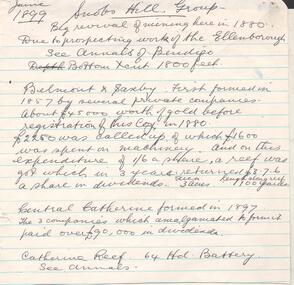 June
1899 Snobs Hill Group
Big revival of mining here in 1880.
Due to prospecting work of the Ellenborough.
See Annals of Bendigo
Depth Bottom Xcut 1800 feet
Belmont & Saxby. First formed in
1857 by several private companies.
About £45000 worth of gold before
registration of this Coy in 1880
£2250 was called up of which £1600
was spent on machinery. And on this
expenditure of 1/6 a share, a reef was
got which in 3 years returned
a share in dividends. area 3 acres Length along reef 100 yards
Central Catherine formed in 1897
The 3 companies which amalgamated to form it
paid over £90,000 in dividends.
Catherine Reef. 64 Hd. Battery.
See Annals.